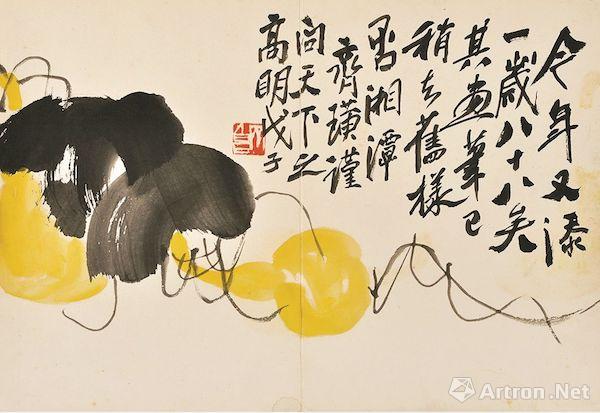 今年又添
一歲八十八矣
其畫筆已
稍去舊樣
否湘潭
齊璜謹
問天下之
高明戊子
Artron.Net